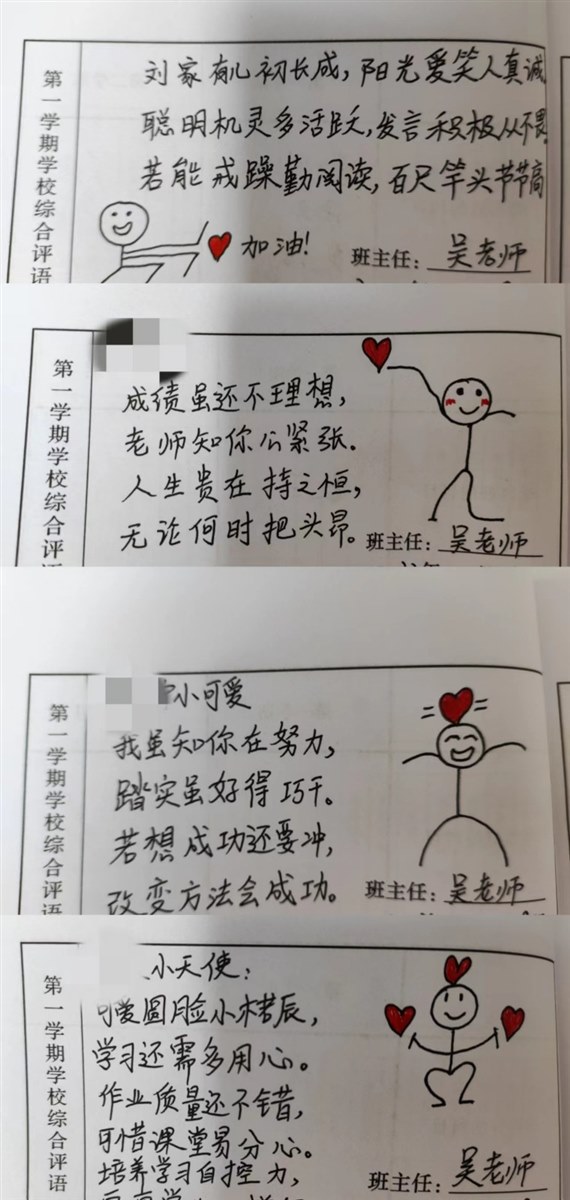 第一学期学校综合评语
刘家有儿初长成，阳光爱笑人真诚
聪明机灵多活跃，发言积极从不畏
若能戒躁勤阅读，百尺竿头节节高
加油！
班主任：吴老师
第一学期学校综合评语
成绩虽还不理想，
老师知你心紧张。
人生贵在持之恒，
无论何时把头昂。
班主任：吴老师
第一学期学校综合评语
小可爱
我虽知你在努力，
踏实虽好得巧干。
若想成功还要冲，
改变方法会成功。
班主任：吴老师
第一学期学校综合评语
小天使：
可爱圆脸小楷辰，
学习还需多用心。
作业质量还不错，
可惜课堂易分心。
培养学习自控力，
吴老师
班主任：